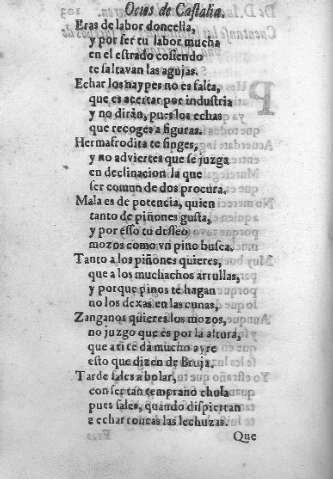 Ocios de Castalia.
Eras de labor doncella,
y por ser tu labor mucha
en el estrado cosiendo
te saltavan las agujas.
Echar los naypes no es falta,
que es acertar por industria
y no dirán, pues los echas
que recoges a figuras.
Hermafrodita te finges,
y no adviertes que se juzga
en declinacion la que
ser comun de dos procura.
Mala es de potencia, quien
tanto de piñones gusta,
y por esso tu desseo
mozos como vn pino busca.
Tanto a los piñones quieres,
que a los muchachos arrullas,
y porque pinos te hagan
no los dexas en las cunas,
Zanganos quieres los mozos,
no juzgo que es por la altura,
que a ti te dà mucho ayre
esto que dizen de Bruja.
Tarde sales a bolar,
con ser tan temprano chula
pues sales, quando dispiertan
a echar toucas las lechuzas.
Que